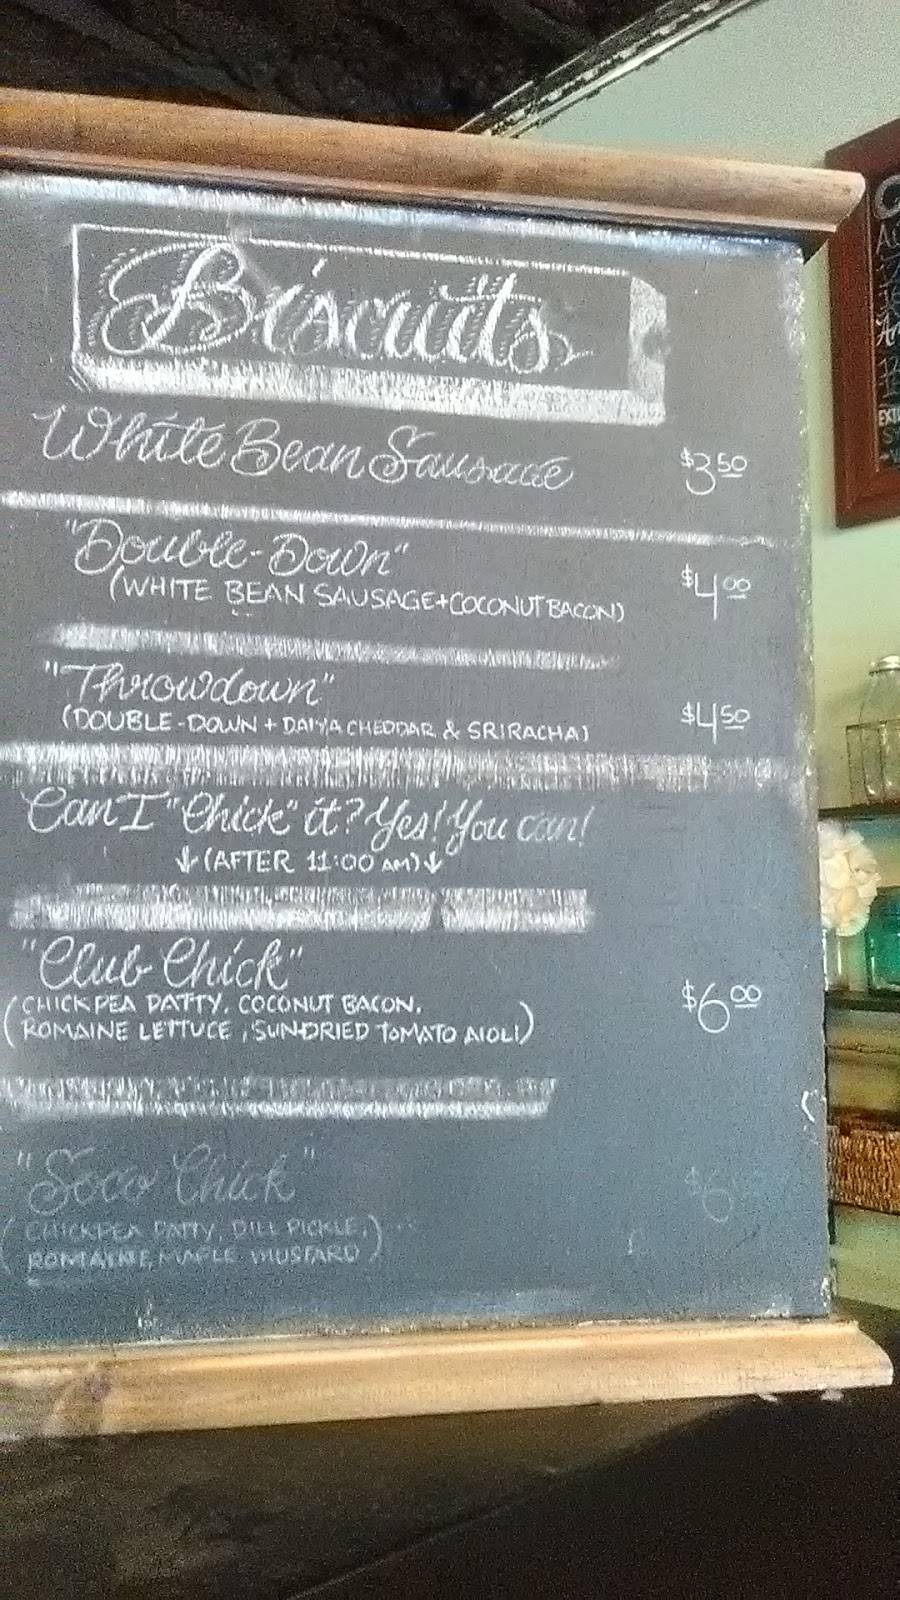 Biscuits
White Bean Sausage $3.50
"Double-Down"
(WHITE BEAN SAUSAGE+COCONUT BACON) $4.00
"Throwdown"
(DOUBLE-DOWN + DAIYA CHEDDAR & SRIRACHA) $4.50
Can I "Chick" it? Yes! You can!
↓(AFTER 11:00 AM)↓
"Club Chick"
(CHICKPEA PATTY, COCONUT BACON, $6.00
ROMAINE LETTUCE, SUNDRIED TOMATO AIOLI)
"Soco Chick"
(CHICKPEA PATTY, DILL PICKLE,
ROMAINE, MAPLE MUSTARD)